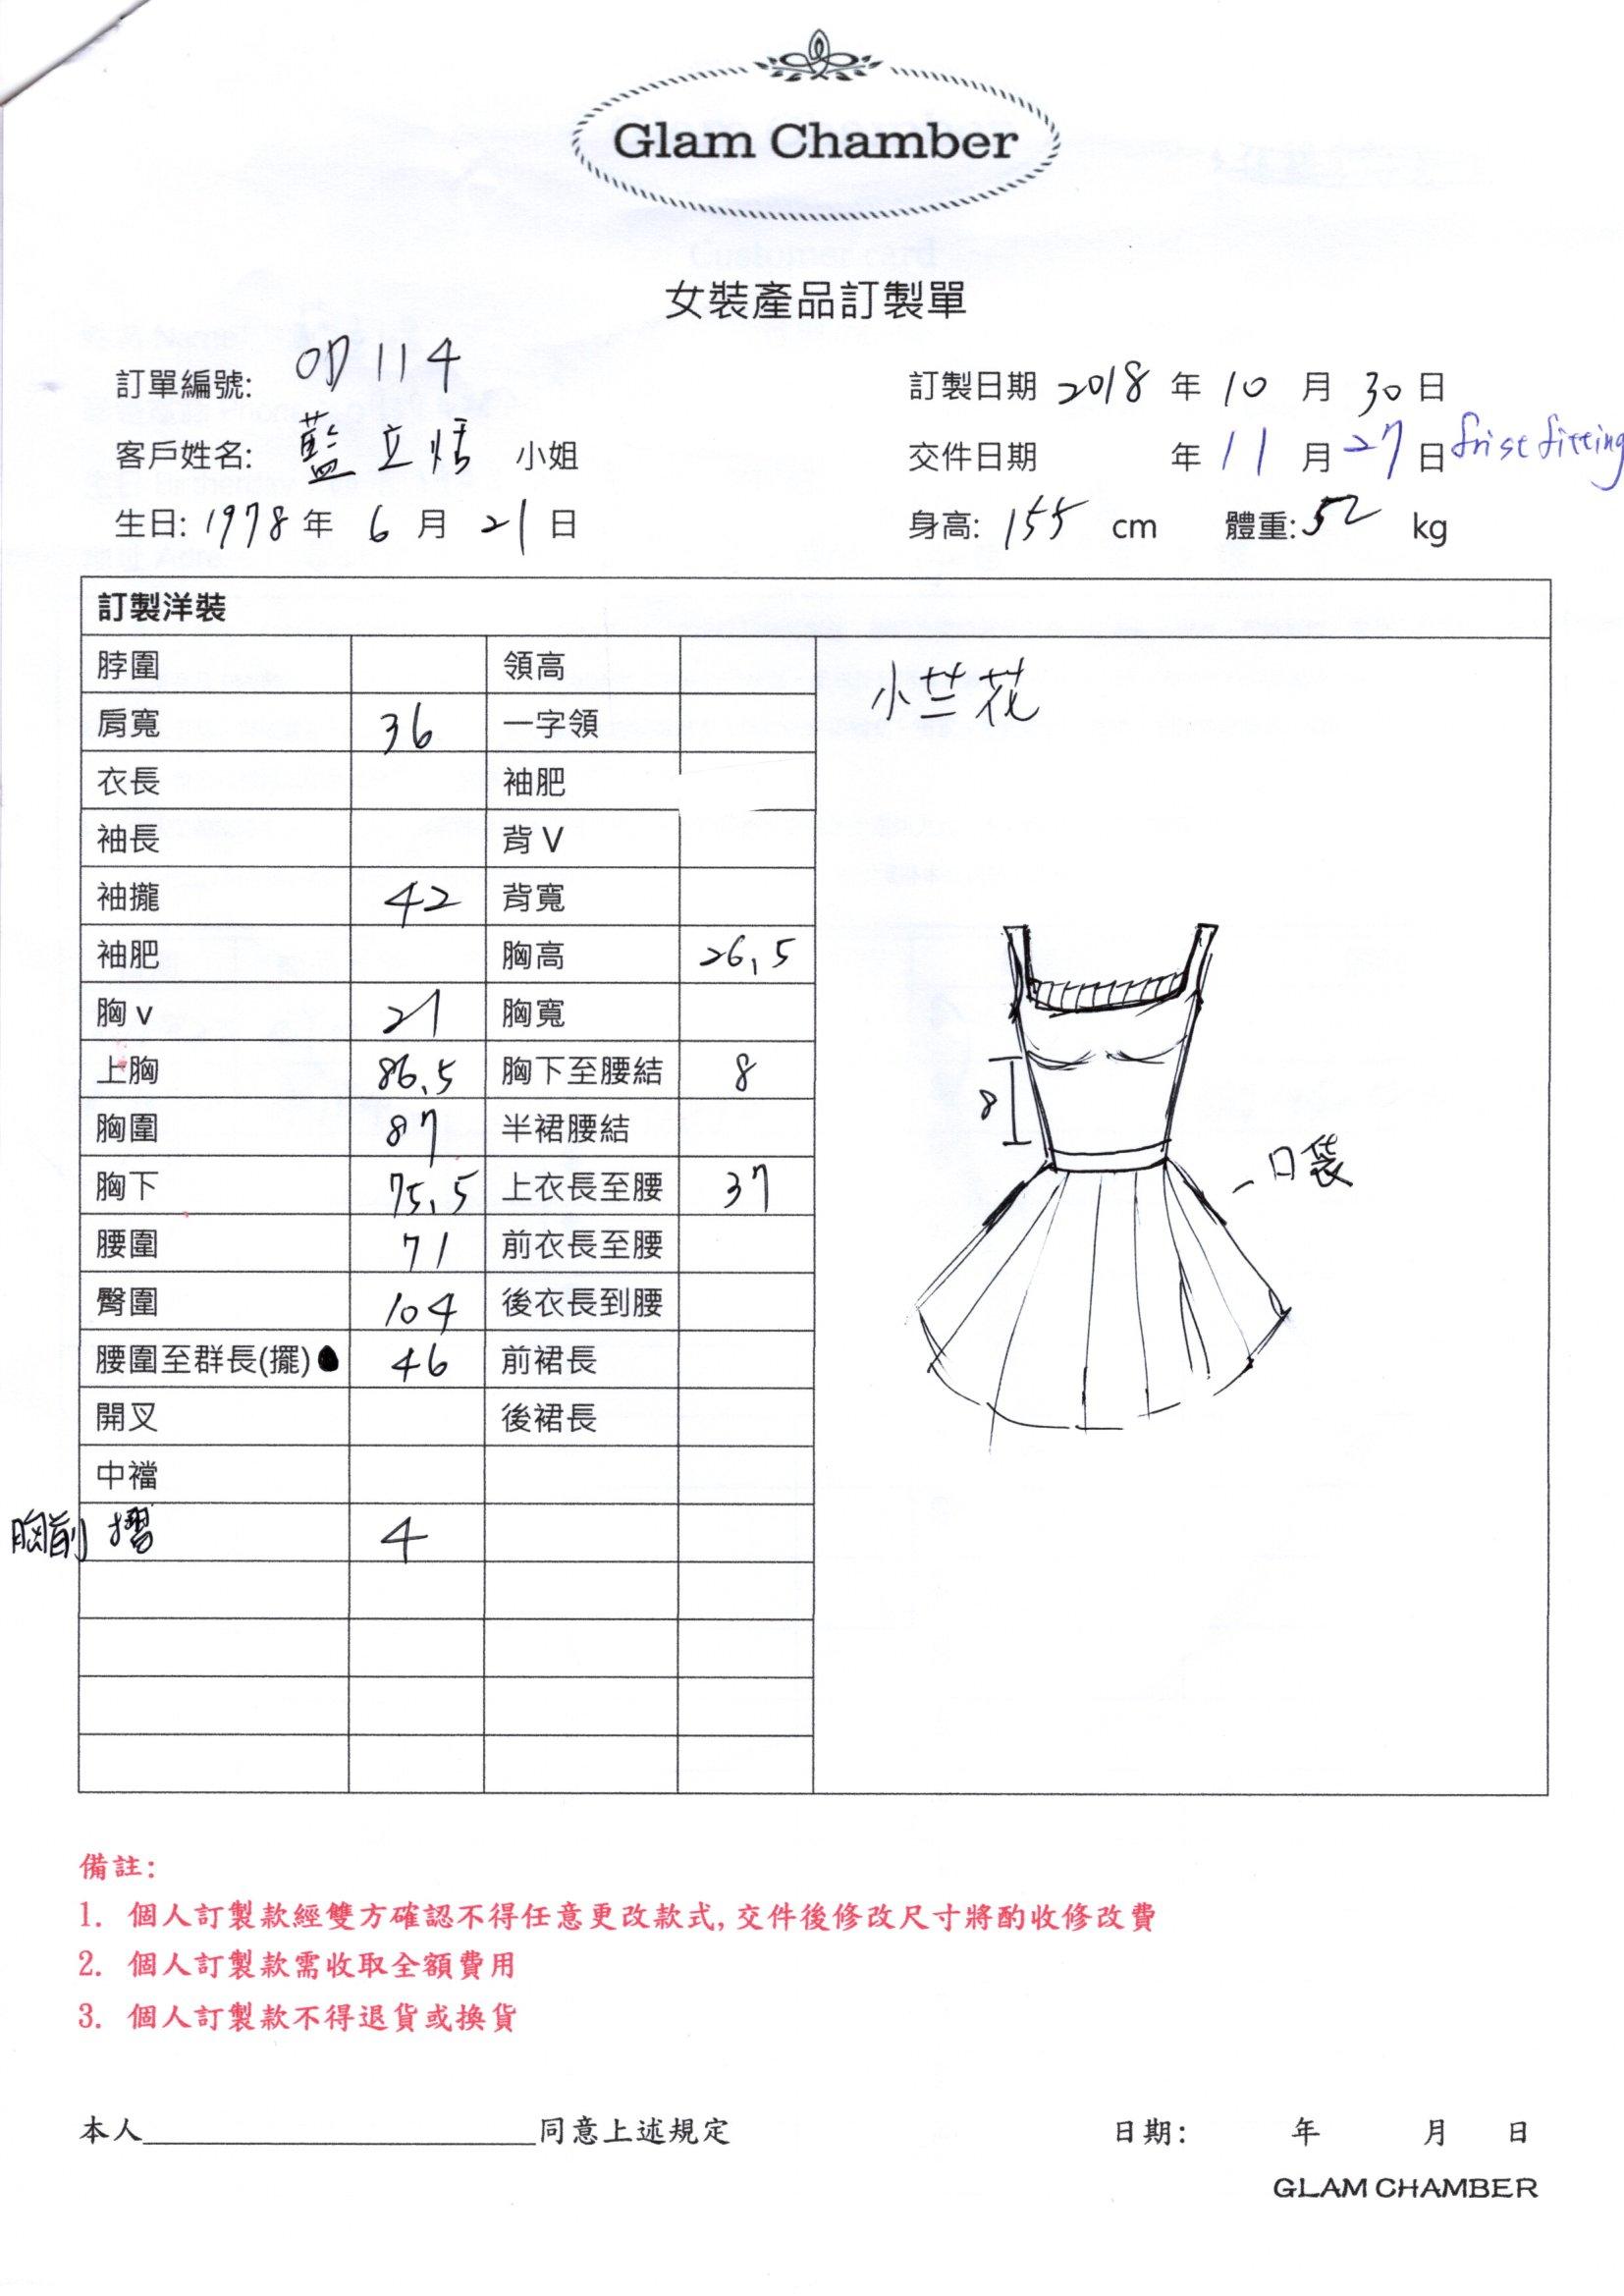 Glam Chamber
女裝產品訂製單
訂單編號: OD114
訂製日期 2018 年 10 月 30 日
客戶姓名: 藍立恬 小姐
交件日期 年 11 月 27 日 frist fitting
生日: 1978 年 6 月 21 日
身高: 155 cm 體重: 52 kg
訂製洋裝
脖圍 領高
肩寬 36 一字領
小苎花
衣長 袖肥
袖長 背 V
袖攏 42 背寬
袖肥 胸高 26,5
胸 v 21 胸寬
上胸 86,5 胸下至腰結 8
8
胸圍 87 半裙腰結
胸下 75,5 上衣長至腰 37
一口袋
腰圍 71 前衣長至腰
臀圍 104 後衣長到腰
腰圍至群長(擺) 46 前裙長
開叉 後裙長
中襠
胸前 摺 4
備註:
1. 個人訂製款經雙方確認不得任意更改款式, 交件後修改尺寸將酌收修改費
2. 個人訂製款需收取全額費用
3. 個人訂製款不得退貨或換貨
本人 同意上述規定
日期: 年 月 日
GLAM CHAMBER